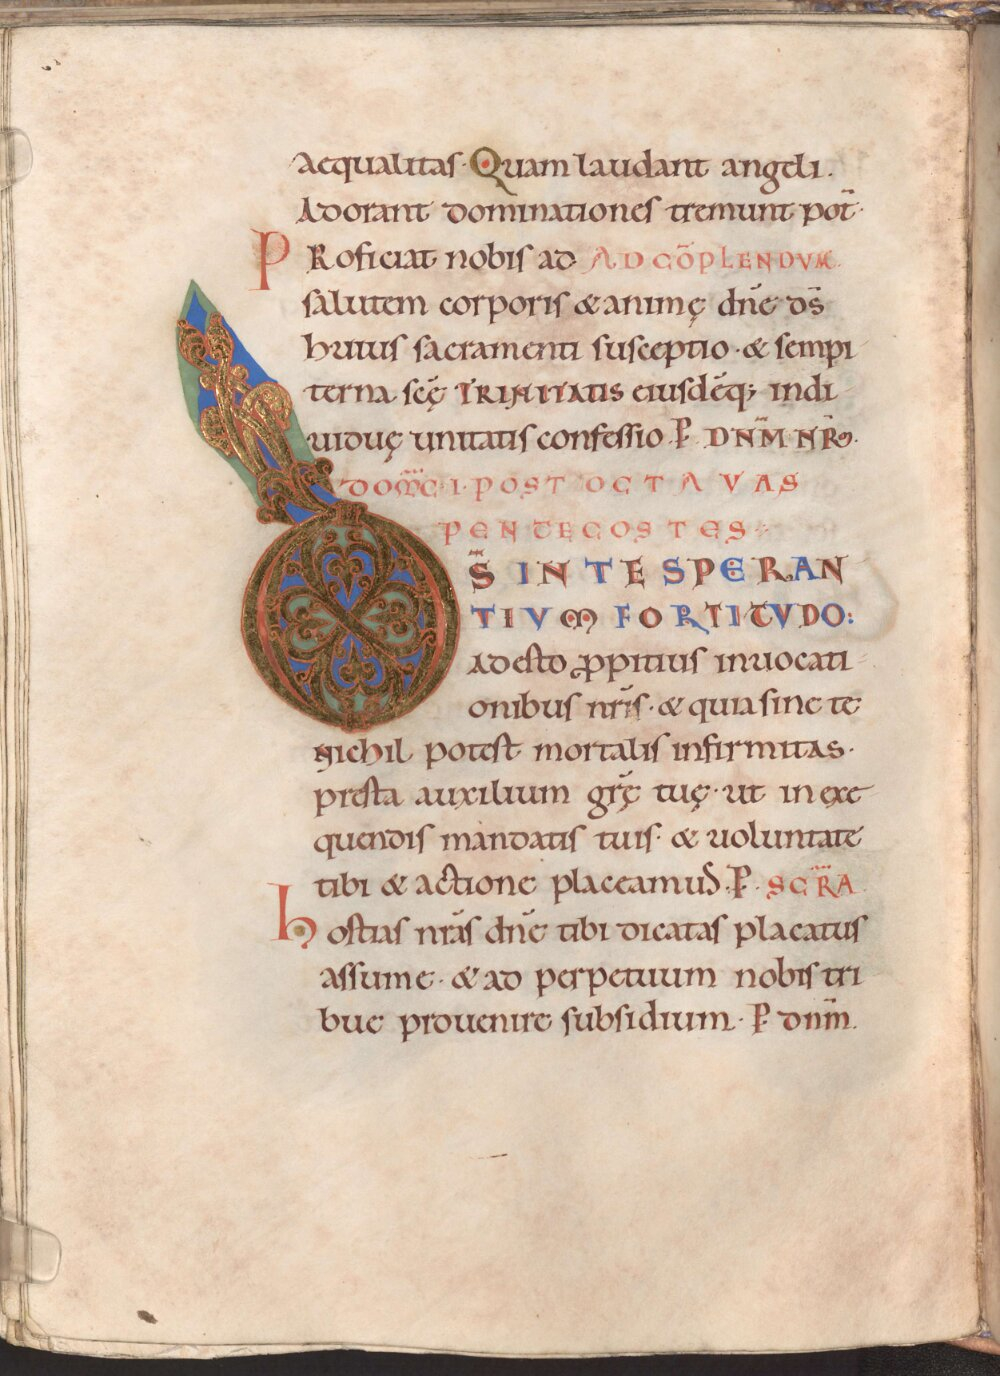 aequalitas· Quam laudant angeli.
Adorant dominationes tremunt pot̄·
PRoficiat nobis ad AD CŌPLENDVM
salutem corporis & animę dn̄e ds̄
huius sacramenti susceptio· & sempi
terna scę̄ TRINITATIS eiusdēq; indi
uiduę unitatis confessio. P. DN̄M NR̄M.
DOM̄C· I· POST OCTAVAS
PENTECOSTES·
D̄S IN TE SPERAN
TIVM FORTITVDO:
adesto ꝓpitius inuocati
onibus nr̄is· & quia sine te
nichil potest mortalis infirmitas·
presta auxilium gr̄ę tuę· ut in exe
quendis mandatis tuis· & uoluntate
tibi & actione placeamus. P. SECR̄A
hostias nr̄as dn̄e tibi dicatas placatus
assume· & ad perpetuum nobis tri
bue prouenire subsidium· P. dnm̄.